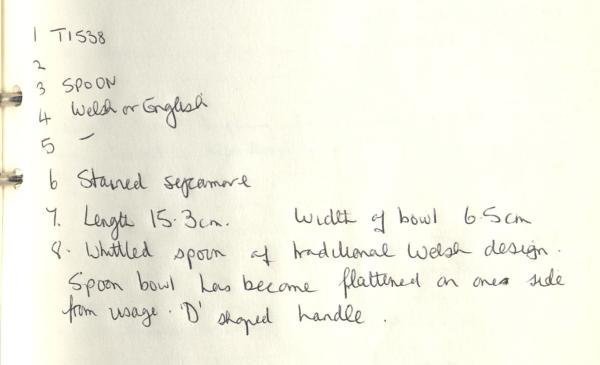 1 T1538
2
3 SPOON
4 Welsh or English
5 –
6 Stained sycamore
7. Length 15.3cm. Width of bowl 6.5cm
8. Whittled spoon of traditional Welsh design.
Spoon bowl has become flattened on one side
from usage. 'D' shaped handle.